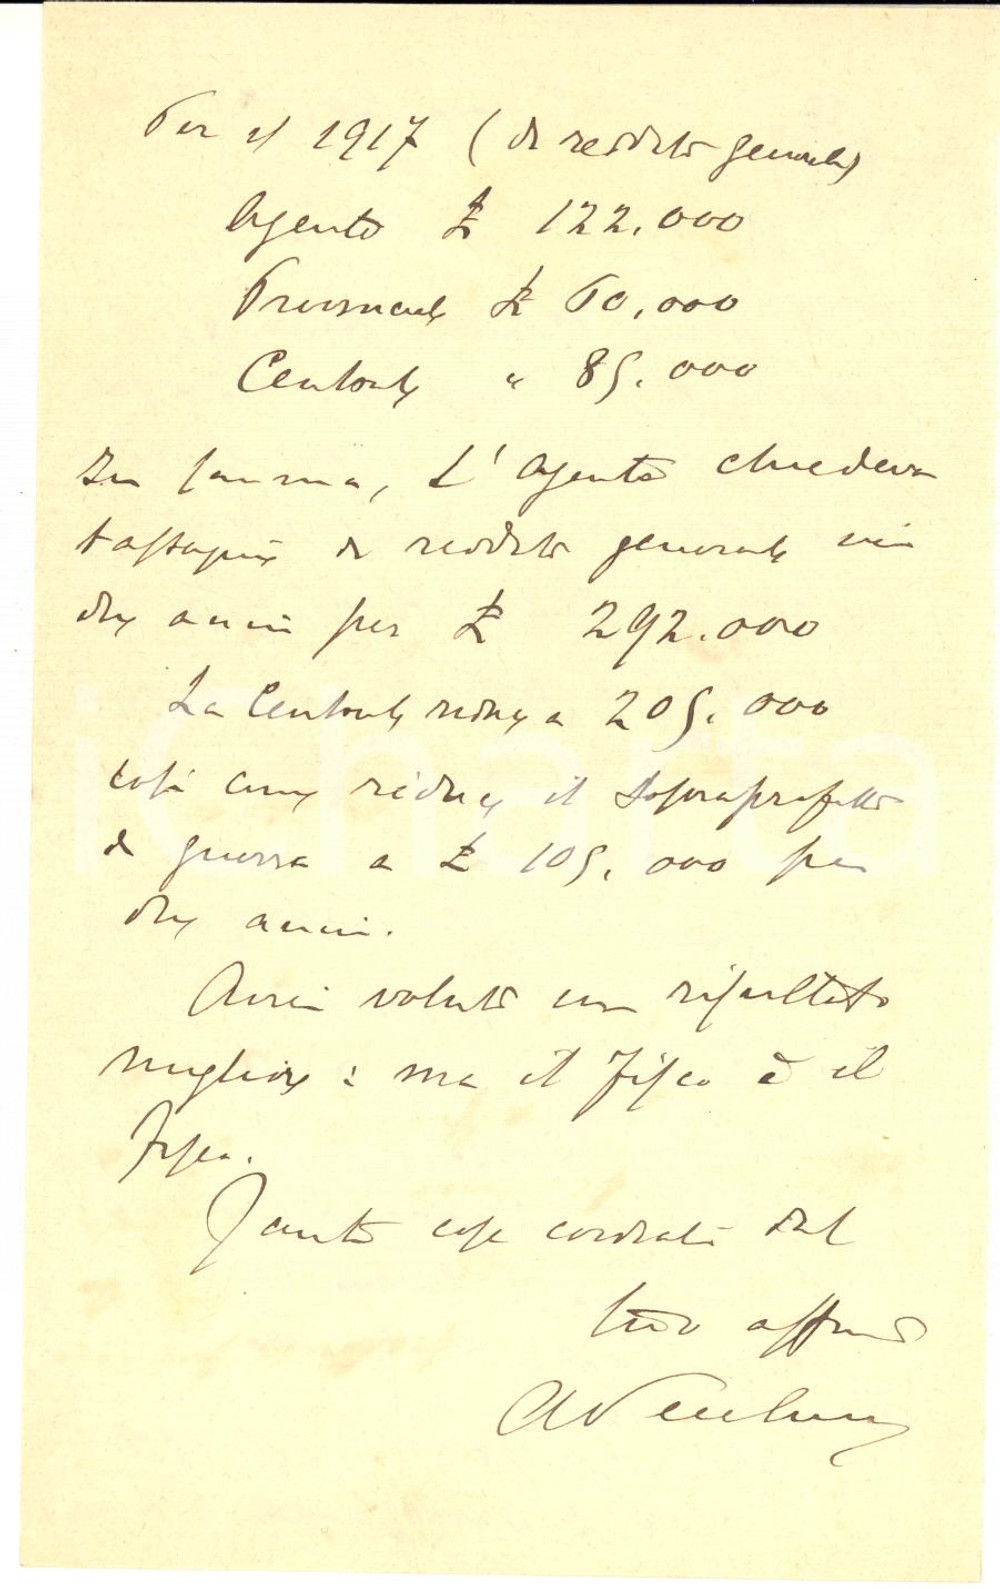 Per il 1917 (di reddito generale)
Agente £ 122.000
Provinciale £ 60,000
Centrale " 85.000
In somma, L'Agente chiedeva
tassazione di reddito generale nei
due anni per £ 292.000
La Centrale riduce a 205.000
così come riduce il sopraprofitto
di guerra a £ 105,000 per
due anni.
Avrei voluto un risultato
migliore: ma il Fisco è il
Fisco.
Tante cose cordiali dal
tuo affmo